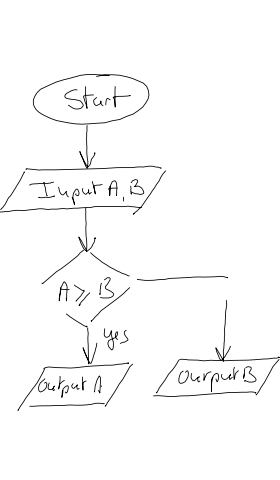 Start
Input A, B
A ⩾ B
yes
output A
output B